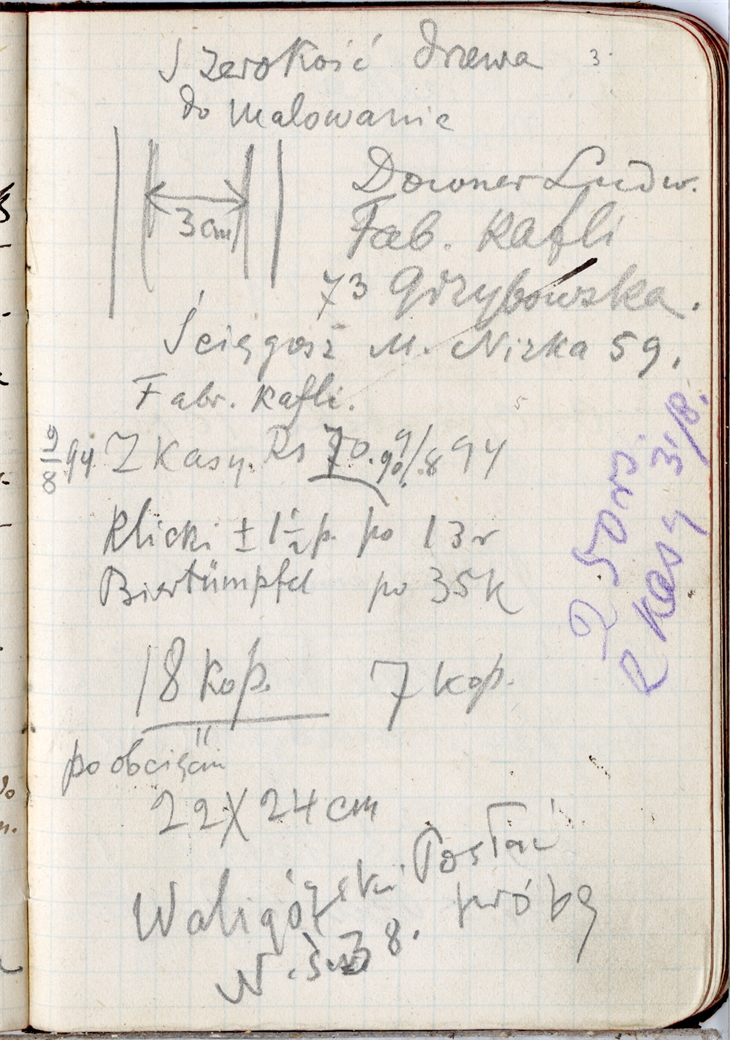 Szerokość drzewa 3
do malowania
3 cm
Downer Ludw.
Fab. kafli
73 Grzybowska.
Ściągosz M. Nizka 59.
Fabr. kafli.
Z kasy. Rs 70. 894
Klicki ± 1 1/2 p. po 13 r
Biertümpfel po 35 k
18 kop. 7 kop.
"
po obcięciu
22 X 24 cm
Waligórski Posłać
próbę
N. Św 8.
50 rs.
z kasy 3/8.